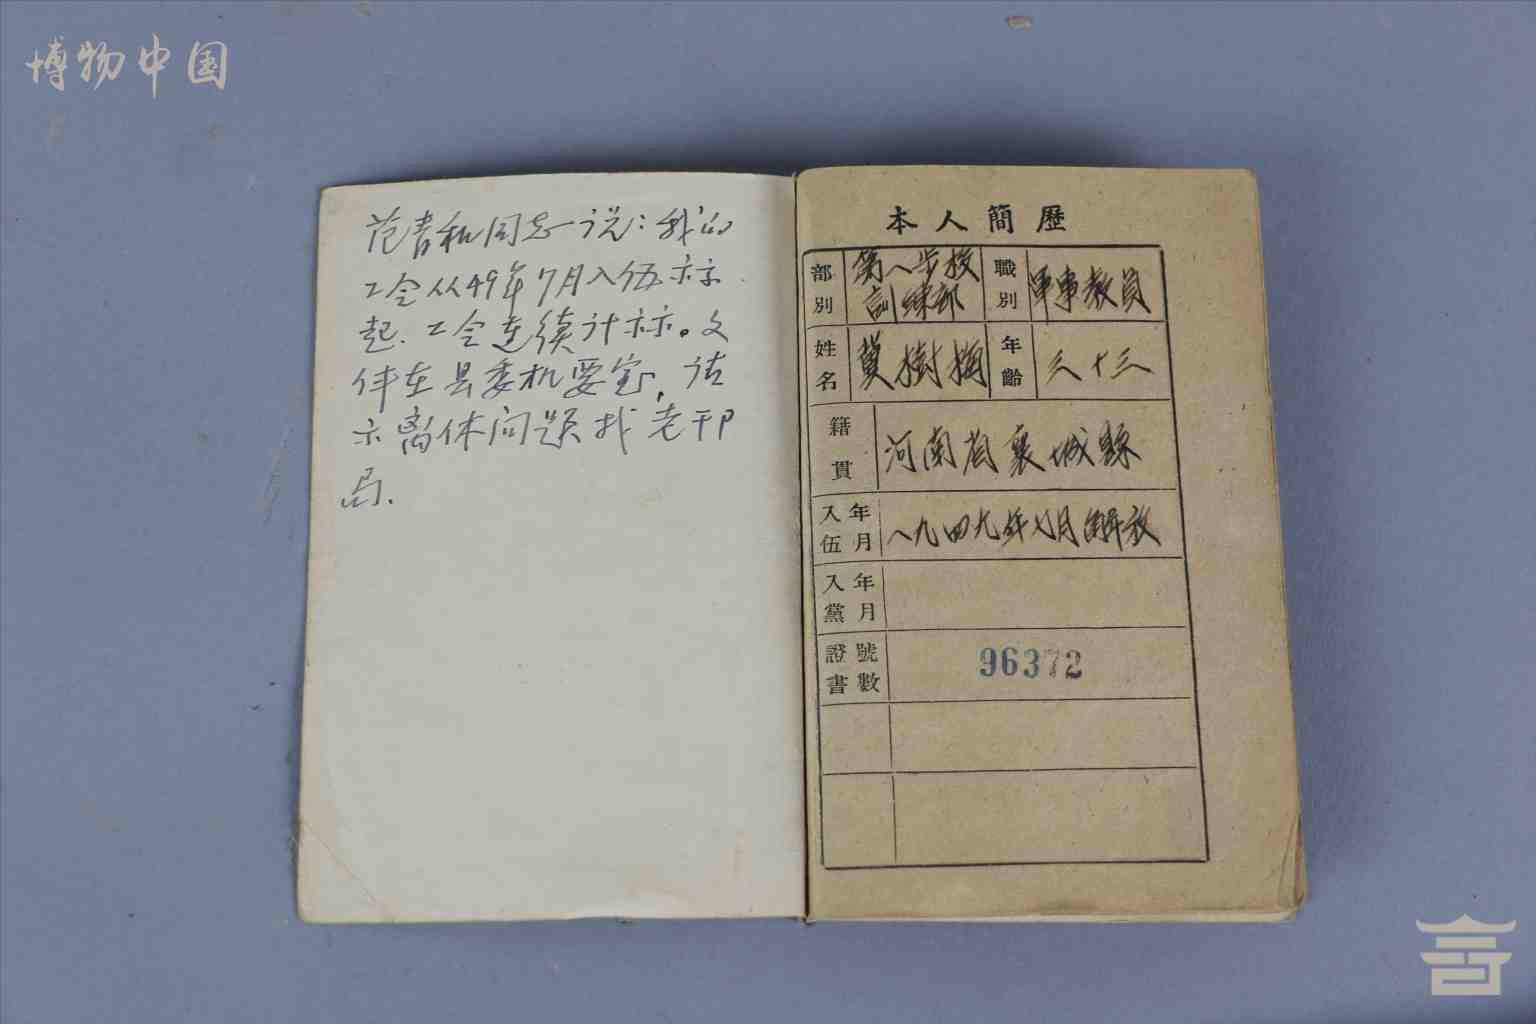 博物中国
范书和同志一说：我的
工令从49年7月入伍标
起.工令连续计标。文
件在县委机要室，请
示离休问题找老干
局.
本人簡歷
部別 第八步校訓練部 職別 軍事教員
姓名 樹梅 年齡 三十三
籍貫 河南省襄城縣
入伍年月 一九四九年七月解放
入黨年月
證書號數 96372